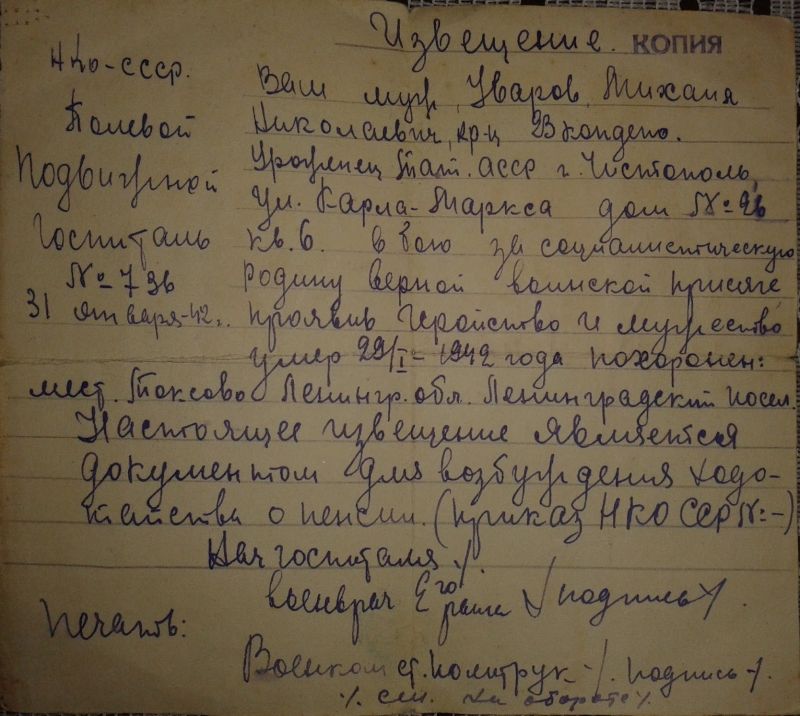 Извещение. КОПИЯ
НКО-СССР.
Полевой
Подвижной
Госпиталь
№ 736
31 января-42г.
Ваш муж, Уваров, Михаил
Николаевич, кр-ц 23 кондепо.
Уроженец Тат. АССР г. Чистополь,
Ул. Карла-Маркса дом № 26
кв. 6. в бою за социалистическую
родину верной воинской присяге
проявив геройство и мужество
умер 29/I-1942 года похоронен:
мест. Токсово Ленингр. обл. Ленинградский посел.
Настоящее извещение является
документом для возбуждения хода-
тайства о пенсии. (приказ НКО ССР №-)
Нач госпиталя /.
военврач /подпись/.
Печать:
Военком ст. политрук -/. подпись-/.
/. см. на обороте/.